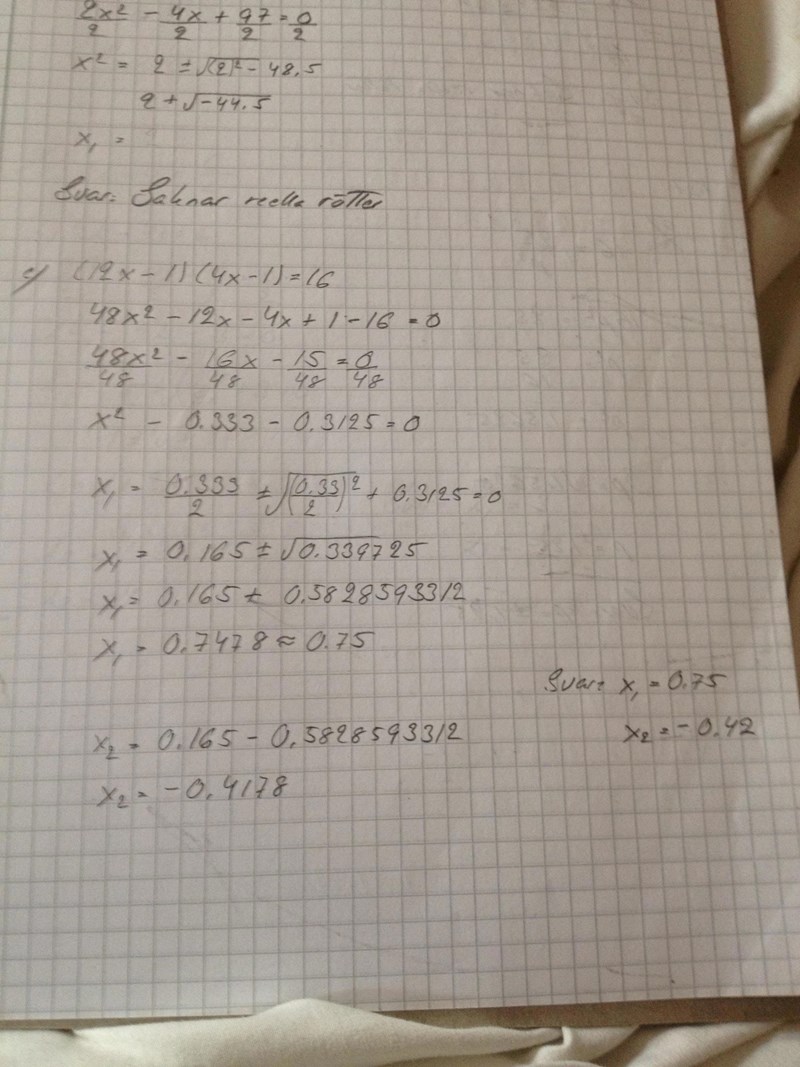 2x²/2 - 4x/2 + 97/2 = 0/2
x² = 2 ± √(2)² - 48.5
2 + √-44.5
x₁ =
Svar: Saknar reella rötter
c/ (12x - 1)(4x - 1) = 16
48x² - 12x - 4x + 1 - 16 = 0
48x²/48 - 16x/48 - 15/48 = 0/48
x² - 0.333 - 0.3125 = 0
x₁ = 0.333/2 ± √(0.33/2)² + 0.3125 = 0
x₁ = 0.165 ± √0.339725
x₁ = 0.165 ± 0.5828593312
x₁ = 0.7478 ≈ 0.75
Svar: x₁ = 0.75
x₂ = - 0.42
x₂ = 0.165 - 0.5828593312
x₂ = -0.4178